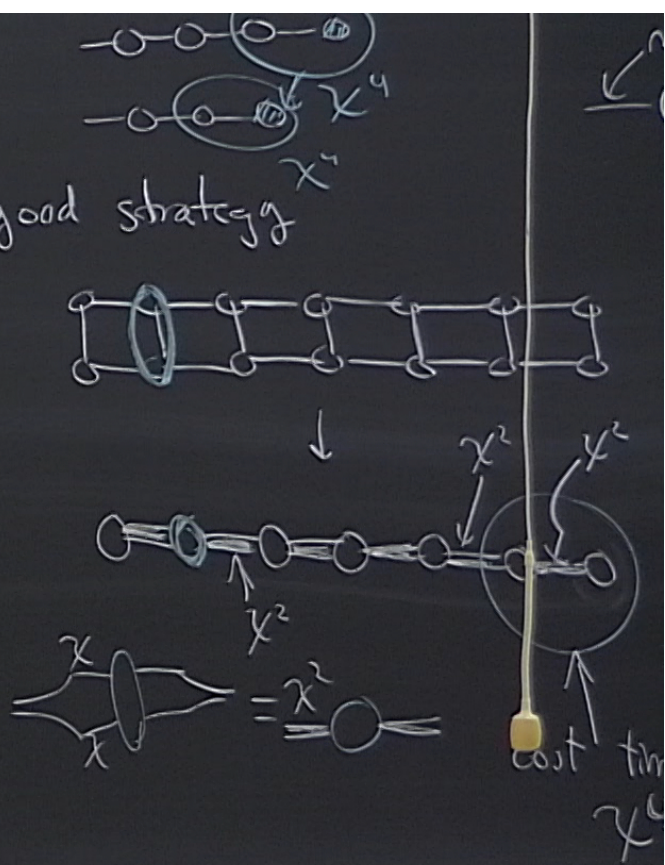 χ⁴
χ⁴
good strategy
χ² χ²
χ²
χ
= χ²
χ
cost